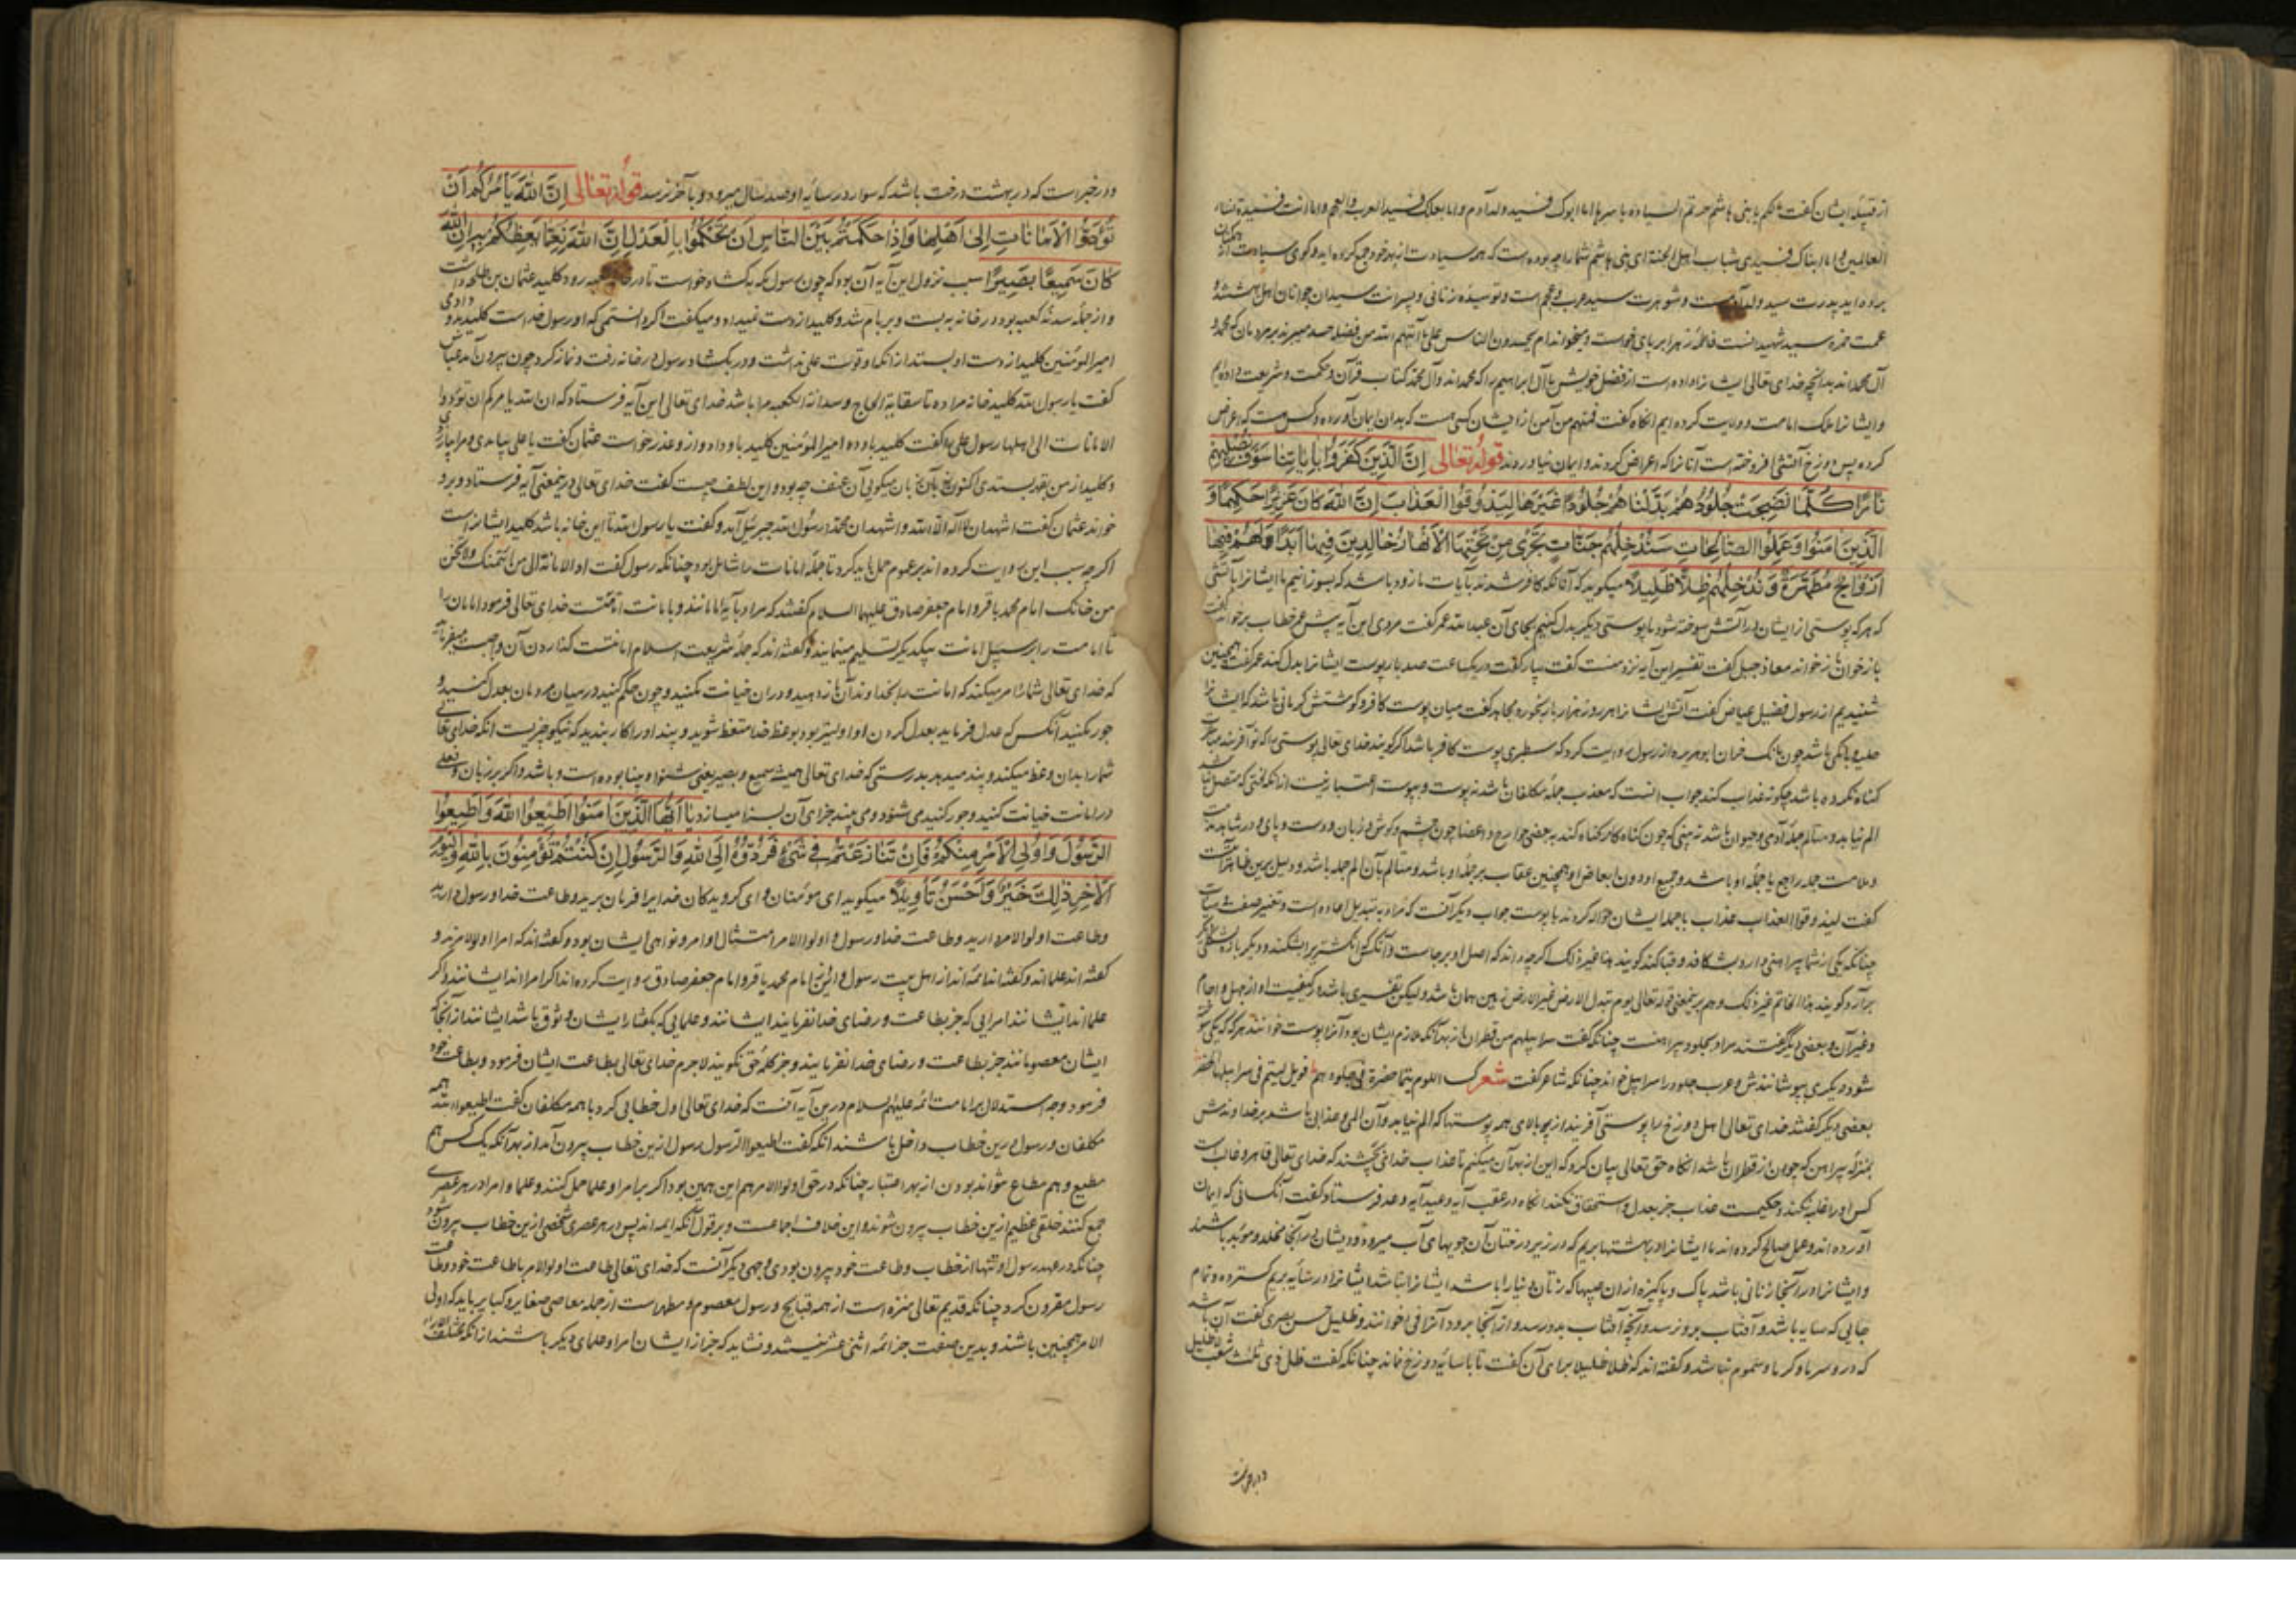 از قبیله ایشان گفت لکم یا بنی هاشم حزتم السیاده باسرها اما ابوک فسید ولد آدم و اما بعلک فسید العرب والعجم و اما انت فسیدة نساء
العالمین و اما ابناک فسیدی شباب اهل الجنة ای بنی هاشم شما را چه بوده است که همه سیادت از بهر خود جمع کرده اید و کوی سیادت از همکنان
برده اید پدرت سید ولد آدمست و شوهرت سید عرب و عجم است و تو سیده زنانی و پسرانت سیدان جوانان اهل بهشتند و
عمت حمزه سید شهیدانست فاطمه زهرا بر پای خواست و میخواند ام یحسدون الناس علی ما آتیهم الله من فضله حسد میبرند بر مردمان که محمد و
آل محمد اند بدانچه خدای تعالی ایشانرا داده است از فضل خویش ما آل ابراهیم را که محمد اند و آل محمد کتاب قرآن و حکمت و شریعت داده ایم
و ایشانرا ملک امامت و ولایت کرده ایم آنکاه گفت فمنهم من آمن از ایشان کسی هست که بدان ایمان آورده و کس هست که اعراض
کرده پس دوزخ آتشی افروخته است آنانرا که اعراض کردند و ایمان نیاوردند قوله تعالی اِنَّ الَّذِینَ کَفَرُوا بِاٰیَاتِنَا سَوْفَ نُصْلِیهِمْ
نَارًا کُلَّمَا نَضِجَتْ جُلُودُهُمْ بَدَّلْنَاهُمْ جُلُودًا غَیْرَهَا لِیَذُوقُوا الْعَذَابَ اِنَّ اللّٰهَ کَانَ عَزِیزًا حَکِیمًا وَ
الَّذِینَ اٰمَنُوا وَعَمِلُوا الصَّالِحَاتِ سَنُدْخِلُهُمْ جَنَّاتٍ تَجْرِی مِنْ تَحْتِهَا الْاَنْهَارُ خَالِدِینَ فِیهَا اَبَدًا لَهُمْ فِیهَا
اَزْوَاجٌ مُطَهَّرَةٌ وَنُدْخِلُهُمْ ظِلًّا ظَلِیلًا میکوید که آنانکه کافر شدند بآیات ما زود باشد که بسوزانیم ما ایشانرا بآتشی
که هر که پوستی از ایشان در آتش سوخته شود ما پوستی دیکر بدل کنیم بجای آن عبد الله عمر گفت مردی این آیه پیش عمر خطاب بر خواند گفت
باز خوان باز خواند معاذ جبل گفت تفسیر این آیه نزد منست گفت بیار گفت در یکساعت صد بار پوست ایشانرا بدل کنند عمر گفت همچنین
شنیدیم از رسول فضیل عیاض گفت آتش ایشانرا هر روز هزار بار بخورد مجاهد گفت میان پوست کافر و کوشتش کرمانی باشند که ایشانرا
جلبه بانکی باشد چون بانک خران ابوهریره از رسول روایت کرد که سطبری پوست کافر باشد اکر کویند خدای تعالی پوستی را که نو آفریند مباشر
کناه نکرده باشد چکونه عذاب کند جواب آنست که معذب جمله مکلفان باشد نه پوست و بپوست اعتبار نیست از آنکه آنچه متصل نباشد
الم نیابد و متالم جمله آدمی و حیوان باشد نه بینی که چون کناه کار کناه کند به بعضی جوارح و اعضا چون چشم و کوش و زبان و دست و پای و در شاهد مدح
و ملامت جمله راجع با جمله او باشد و جمیع او دون ابعاض او همچنین عقاب بر جمله او باشد و متالم بآن الم جمله باشد و دلیل برین ظاهر آیتست
گفت لیذوقوا العذاب عذاب با جمله ایشان حواله کرد نه با پوست جواب دیکر آنست که مراد به تبدیل اعاده است و تغییر صفت
چنانکه یکی از شما پیراهنی دارد بشکافد و قبا کند کویند هذا غیر ذلک اکرچه داند که اصل او بر جاست و آنکس که انکشتریرا بشکند و دیکر باره بشکلی دیکر
برآرد کویند هذا الخاتم غیر ذلک و هم برینمعنی قوله تعالی یوم تبدل الارض غیر الارض زمین همان باشد ولیکن تغییری باشد در کیفیت او از جبل و اجام
و غیر آن و بعضی دیکر گفتند مراد بجلود پیراهنست چنانکه گفت سرابیلهم من قطران از بهر آنکه ملازم ایشان بود آنرا پوست خوانند هر که که یکی سوخته
شود دیکری بپوشانندش و عرب جلود را سرابیل خواند چنانکه شاعر گفت شعر کسا اللوم تیما خضرة فی جلودهم فویل لتیم فی سرابیلها الخضر
بعضی دیکر گفتند خدای تعالی اهل دوزخ را پوستی آفریند از بر بالای همه پوستها که الم نیابد و آن المی و عذابی باشد بر خداوندش
بمنزله پیراهن که چون از قطران باشد آنکاه حق تعالی بیان کرد که این از بهر آن میکنم تا عذاب خدائی بچشند که خدای تعالی قاهر و غالبست
کس او را غلبه نکند و حکیمست عذاب جز بعدل و استحقاق نکند آنکاه در عقب آیه وعید آیه وعد فرستاد و گفت آنکسانی که ایمان
آورده اند و عمل صالح کرده اند ما ایشانرا در بهشتها بریم که در زیر درختان آن جویهای آب میرود و ایشان در آنجا مخلد و مؤبد باشند
و ایشانرا در آنجا زنانی باشد پاک و پاکیزه از آن عیبها که زنان دنیا را باشد ایشانرا نباشد ایشانرا در سایه بریم کسترده و تمام
جایی که سایه باشد و آفتاب برو نرسد و آنچه آفتاب بدو رسد و از آنجا برود آنرا فئ خوانند و ظلیل حسن بصری گفت آن باشد
که در و سرما و کرما و سموم نباشد و گفته اند که ظلا ظلیلا برای آن گفت تا با سایه دوزخ نماند چنانکه گفت ظل ذی ثلث شعب لا ظلیل
و در خبرست
و در خبر است که در بهشت درخت باشد که سوار در سایه او صد سال میرود و بآخر نرسد قوله تعالی اِنَّ اللّٰهَ یَاْمُرُکُمْ اَنْ
تُؤَدُّوا الْاَمَانَاتِ اِلٰی اَهْلِهَا وَاِذَا حَکَمْتُمْ بَیْنَ النَّاسِ اَنْ تَحْکُمُوا بِالْعَدْلِ اِنَّ اللّٰهَ نِعِمَّا یَعِظُکُمْ بِهِ اِنَّ اللّٰهَ
کَانَ سَمِیعًا بَصِیرًا سبب نزول این آیه آن بود که چون رسول مکه بکشاد خواست تا در خانه کعبه رود کلید عثمان بن طلحه داشت
و از جمله سدنه کعبه بود در خانه به بست و بر بام شد و کلید از دست نمیداد و میکفت اکر دانستمی که او رسول خداست کلید بدو دادمی
امیرالمؤمنین کلید از دست او بستد از آنکه او قوت علی نداشت و در بکشاد رسول در خانه رفت و نماز کرد چون بیرون آمد عباس
گفت یا رسول الله کلید خانه مرا ده تا سقایة الحاج و سدانة الکعبه مرا باشد خدای تعالی این آیه فرستاد که ان الله یامرکم ان تؤدوا
الامانات الی اهلها رسول علی را گفت کلید باو ده امیرالمؤمنین کلید باو داد و ازو عذر خواست عثمان گفت یا علی بیامدی و مرا بیازردی
و کلید از من بقهر بستدی اکنون بآن زبان میکویی آن عنف چه بود و این لطف چیست گفت خدای تعالی درینمعنی آیه فرستاد و برو
خواند عثمان گفت اشهد ان لا اله الا الله و اشهد ان محمدا رسول الله جبرئیل آمد و گفت یا رسول الله تا این خانه باشد کلید ایشانراست
اکرچه سبب این روایت کرده اند بر عموم حمل باید کرد تا جمله امانات را شامل بود چنانکه رسول گفت اد الامانة الی من ائتمنک ولا تخن
من خانک امام محمد باقر و امام جعفر صادق علیهما السلام گفتند که مراد بآیه امامانند و بامانت امامتست خدای تعالی فرمود امامان را
تا امامت را بر سبیل امانت بیکدیکر تسلیم مینمایند و گفته اند که جمله شریعت اسلام امانتست کذاردن آن واجبست میفرماید
که خدای تعالی شما را امر میکند که امانت را بخداوند آن باز دهید و در آن خیانت نکنید و چون حکم کنید در میان مردمان بعدل کنید و
جور نکنید آنکس که عدل فرماید بعدل کردن او اولیتر بود بوعظ خدا متعظ شوید و پند او را کار بندید که نیکو چیزیست آنکه خدای تعالی
شما را بدان وعظ میکند و پند میدهد بدرستی که خدای تعالی همیشه سمیع و بصیر یعنی شنوا و بینا بوده است و باشد و اکر بر زبان و فعلی
در امانت خیانت کنید و جور کنید می شنود و می بیند جزای آن بسزا میسازد یَا اَیُّهَا الَّذِینَ اٰمَنُوا اَطِیعُوا اللّٰهَ وَاَطِیعُوا
الرَّسُولَ وَاُولِی الْاَمْرِ مِنْکُمْ فَاِنْ تَنَازَعْتُمْ فِی شَیْءٍ فَرُدُّوهُ اِلَی اللّٰهِ وَالرَّسُولِ اِنْ کُنْتُمْ تُؤْمِنُونَ بِاللّٰهِ وَالْیَوْمِ
الْاٰخِرِ ذٰلِکَ خَیْرٌ وَاَحْسَنُ تَاْوِیلًا میکوید ای مؤمنان و ای کرویدکان خدایرا فرمان برید و طاعت خدا و رسول دارید
و طاعت اولوالامر دارید و طاعت خدا و رسول و اولوا الامر امتثال اوامر و نواهی ایشان بود و گفته اند که امرا اولوالامرند و
گفته اند علما اند و گفته اند ائمه اند از اهل بیت رسول و این از امام محمد باقر و امام جعفر صادق روایت کرده اند اکر امرا اند ایشانند و اکر
علما اند ایشانند امرایی که جز بطاعت و رضای خدا نفرمایند ایشانند و علمایی که بگفتار ایشان وثوق باشد ایشانند از آنجا که
ایشان معصومانند جز بطاعت و رضای خدا نفرمایند و جز کلمه حق نکویند لاجرم خدای تعالی بطاعت ایشان فرمود و بطاعت خود
فرمود و وجه استدلال بر امامت ائمه علیهم السلام درین آیه آنست که خدای تعالی اول خطابی کرد با همه مکلفان گفت اطیعوا الله همه
مکلفان و رسول درین خطاب داخل باشند آنکه گفت اطیعوا الرسول رسول ازین خطاب بیرون آمد از بهر آنکه یک کس هم
مطیع و هم مطاع نتواند بودن از بهر اعتبار چنانکه در حق اولوا الامر هم این همین بود اکر بر امرا و علما حمل کنند و علما و امرا در هر عصری
جمع کنند خلقی عظیم ازین خطاب بیرون شوند و این خلاف اجماعست و بر قول آنکه ایمه اند پس در هر عصری شخصی ازین خطاب بیرون شود
چنانکه در عهد رسول او تنها از خطاب و طاعت خود بیرون بودی وجهی دیکر آنست که خدای تعالی طاعت اولوالامر با طاعت خود و طاعت
رسول مقرون کرد چنانکه قدیم تعالی منزه است از همه قبایح و رسول معصوم و مطهر است از جمله معاصی صغایر و کبایر باید که اولی
الامر همچنین باشند و بدین صفت جز ائمه اثنی عشر نیستند و نشاید که جز از ایشان امرا و علمای دیکر باشند از آنکه